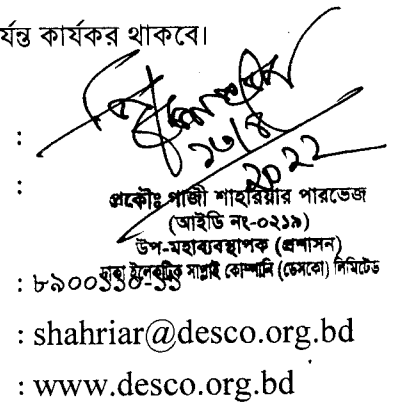 র্যন্ত কার্যকর থাকবে।
:
২০২২
:
প্রকৌঃ গাজী শাহরিয়ার পারভেজ
(আইডি নং-০২১৯)
উপ-মহাব্যবস্থাপক (প্রশাসন)
ঢাকা ইলেকট্রিক সাপ্লাই কোম্পানি (ডেসকো) লিমিটেড
: ৮৯০০১১০-১১
: shahriar@desco.org.bd
: www.desco.org.bd